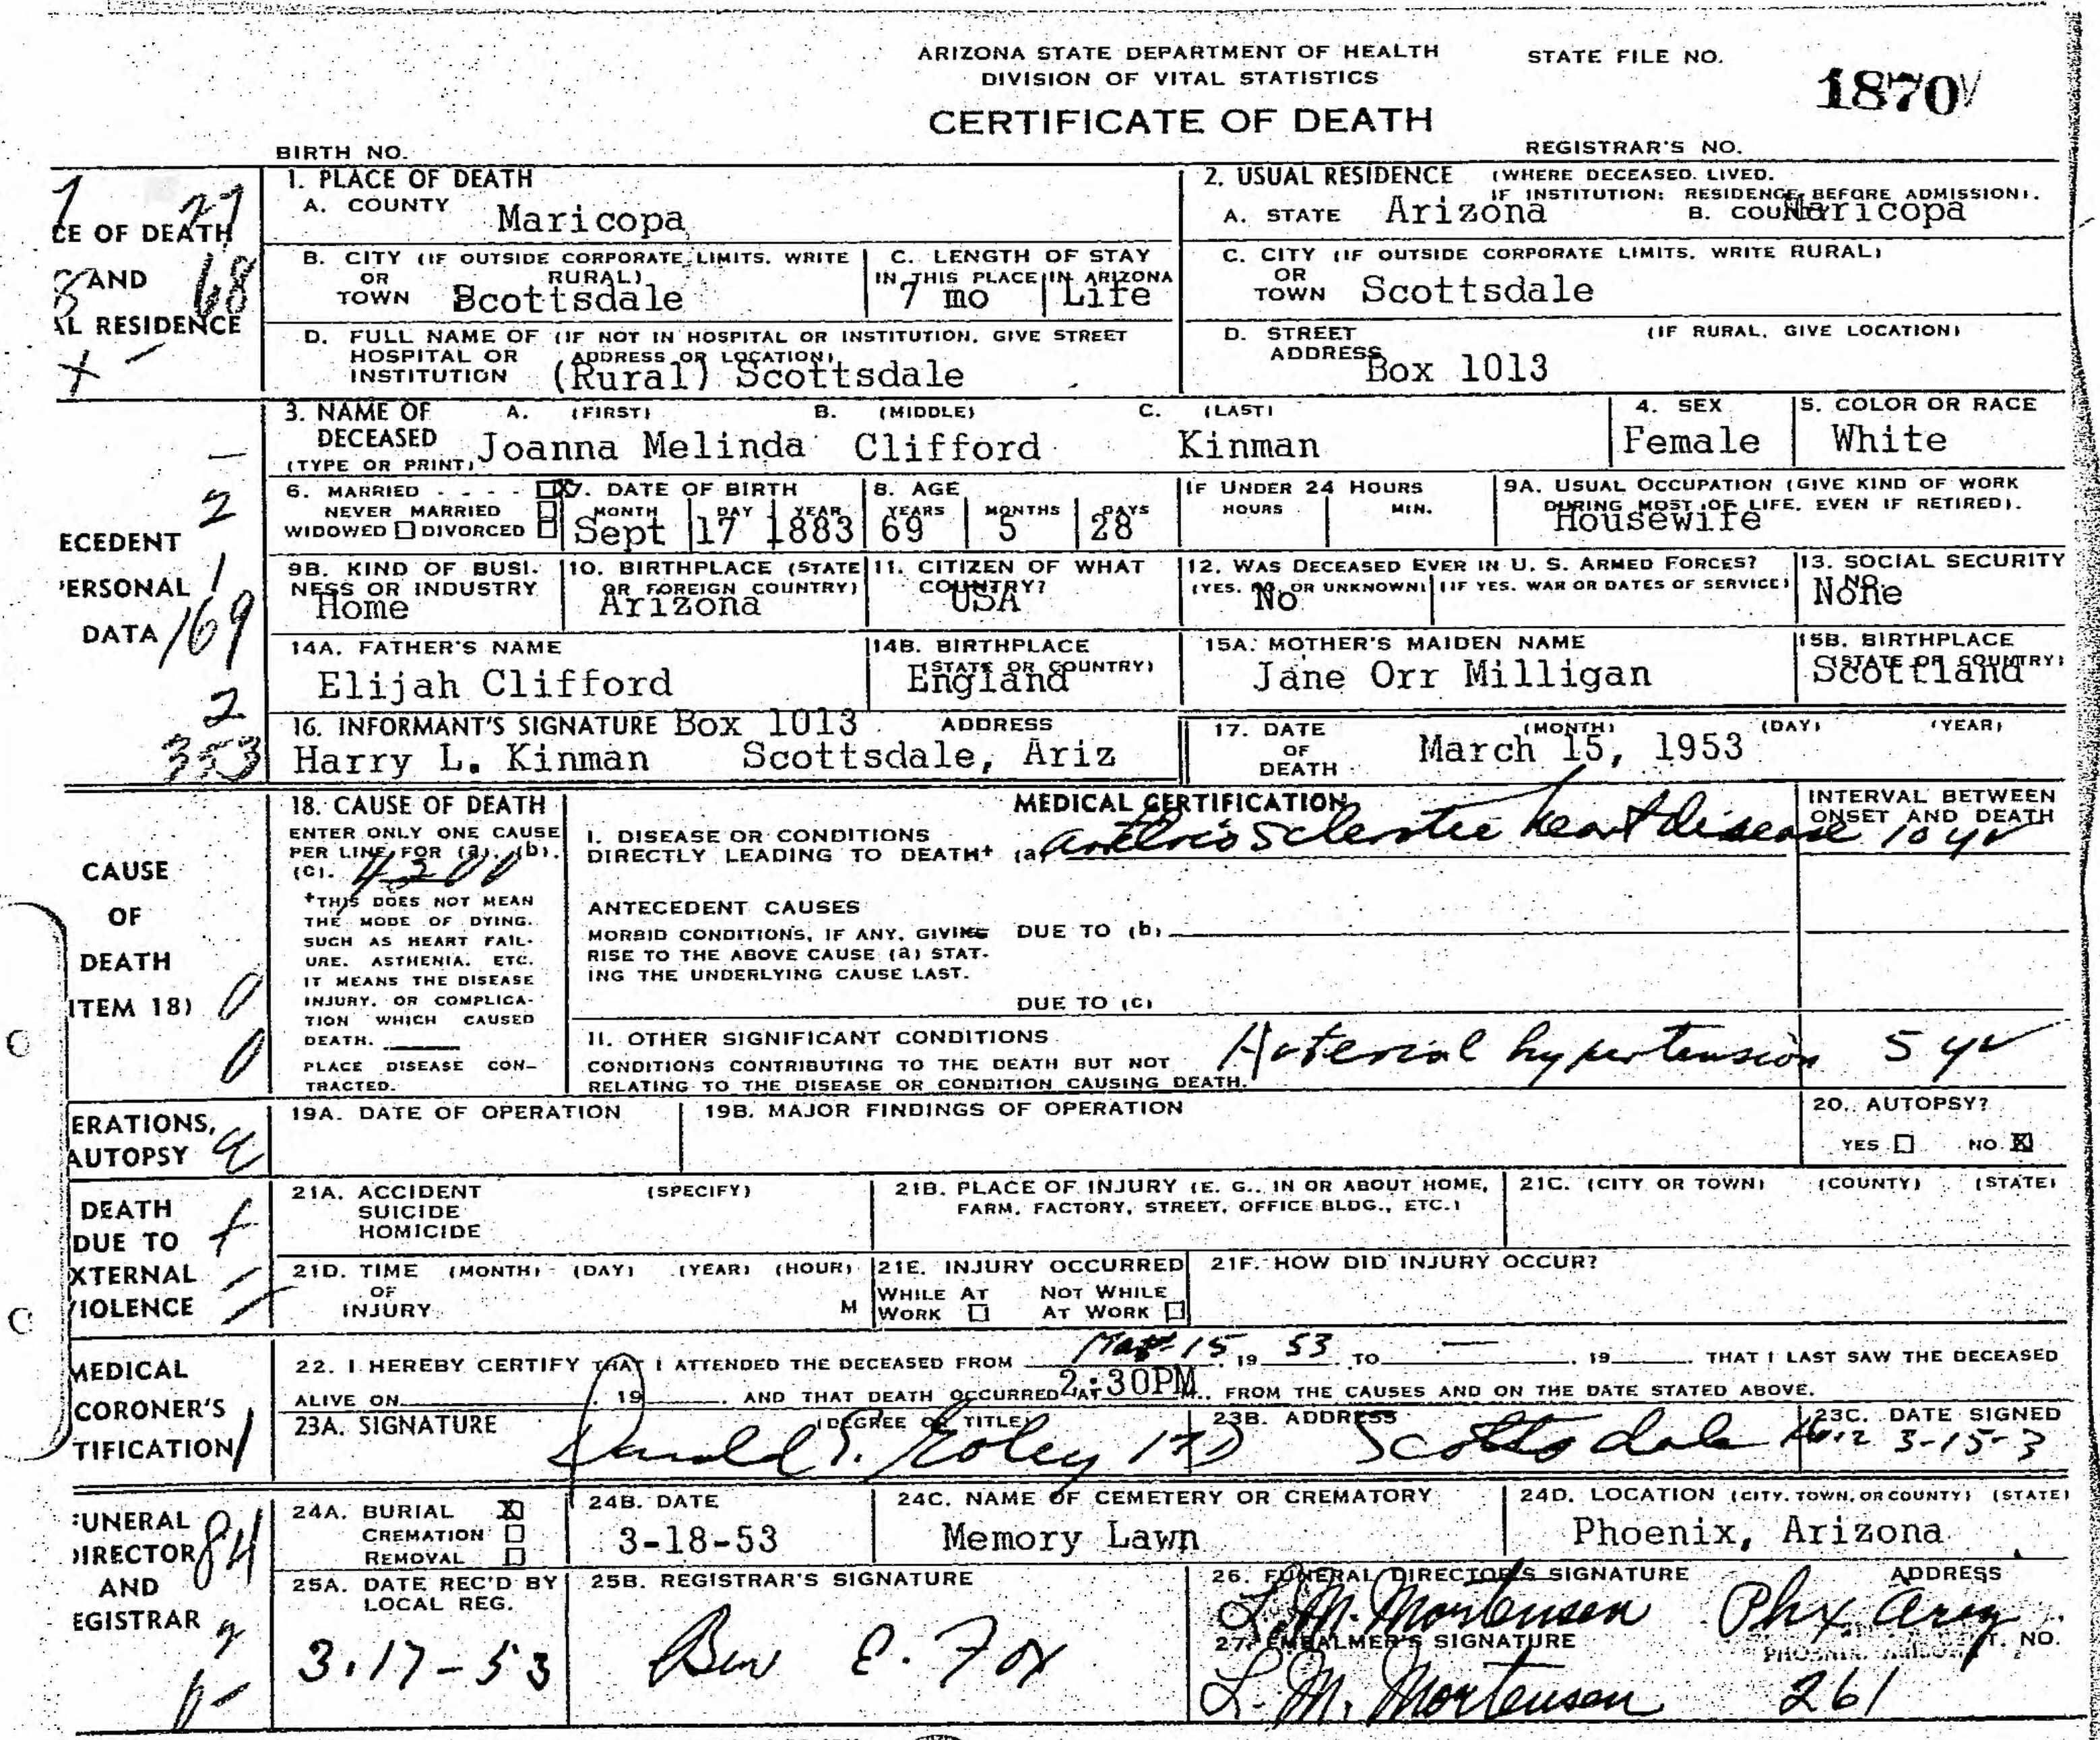 ARIZONA STATE DEPARTMENT OF HEALTH
DIVISION OF VITAL STATISTICS
CERTIFICATE OF DEATH
STATE FILE NO.
1870
BIRTH NO.
REGISTRAR'S NO.
CE OF DEATH
AND
AL RESIDENCE
27
68
1. PLACE OF DEATH
A. COUNTY Maricopa
2. USUAL RESIDENCE (WHERE DECEASED LIVED.
IF INSTITUTION: RESIDENCE BEFORE ADMISSION).
A. STATE Arizona B. COUNTY Maricopa
B. CITY (IF OUTSIDE CORPORATE LIMITS, WRITE RURAL)
OR TOWN Scottsdale
C. LENGTH OF STAY
IN THIS PLACE 7 mo IN ARIZONA Life
C. CITY (IF OUTSIDE CORPORATE LIMITS, WRITE RURAL)
OR TOWN Scottsdale
D. FULL NAME OF (IF NOT IN HOSPITAL OR INSTITUTION, GIVE STREET
HOSPITAL OR ADDRESS OR LOCATION)
INSTITUTION (Rural) Scottsdale
D. STREET (IF RURAL, GIVE LOCATION)
ADDRESS Box 1013
ECEDENT
PERSONAL
DATA
2
1
169
2
353
3. NAME OF A. (FIRST) B. (MIDDLE) C. (LAST)
DECEASED Joanna Melinda Clifford Kinman
(TYPE OR PRINT)
4. SEX
Female
5. COLOR OR RACE
White
6. MARRIED - - - - X
NEVER MARRIED
WIDOWED DIVORCED
7. DATE OF BIRTH
MONTH DAY YEAR
Sept 17 1883
8. AGE
YEARS MONTHS DAYS
69 5 28
IF UNDER 24 HOURS
HOURS MIN.
9A. USUAL OCCUPATION (GIVE KIND OF WORK
DURING MOST OF LIFE, EVEN IF RETIRED).
Housewife
9B. KIND OF BUSI-
NESS OR INDUSTRY
Home
10. BIRTHPLACE (STATE
OR FOREIGN COUNTRY)
Arizona
11. CITIZEN OF WHAT
COUNTRY?
USA
12. WAS DECEASED EVER IN U. S. ARMED FORCES?
(YES, NO, OR UNKNOWN) (IF YES, WAR OR DATES OF SERVICE)
No
13. SOCIAL SECURITY
NO.
None
14A. FATHER'S NAME
Elijah Clifford
14B. BIRTHPLACE
(STATE OR COUNTRY)
England
15A. MOTHER'S MAIDEN NAME
Jane Orr Milligan
15B. BIRTHPLACE
(STATE OR COUNTRY)
Scottland
16. INFORMANT'S SIGNATURE Box 1013 ADDRESS
Harry L. Kinman Scottsdale, Ariz
17. DATE OF DEATH (MONTH) (DAY) (YEAR)
March 15, 1953
CAUSE
OF
DEATH
ITEM 18)
0
0
18. CAUSE OF DEATH
ENTER ONLY ONE CAUSE
PER LINE FOR (a), (b),
(c).
4200
+THIS DOES NOT MEAN
THE MODE OF DYING,
SUCH AS HEART FAIL-
URE, ASTHENIA, ETC.
IT MEANS THE DISEASE
INJURY, OR COMPLICA-
TION WHICH CAUSED
DEATH.
PLACE DISEASE CON-
TRACTED.
MEDICAL CERTIFICATION
INTERVAL BETWEEN
ONSET AND DEATH
I. DISEASE OR CONDITIONS
DIRECTLY LEADING TO DEATH+ (a) arteriosclerotic heart disease 10 yr
ANTECEDENT CAUSES
MORBID CONDITIONS, IF ANY, GIVING DUE TO (b)
RISE TO THE ABOVE CAUSE (a) STAT-
ING THE UNDERLYING CAUSE LAST.
DUE TO (c)
II. OTHER SIGNIFICANT CONDITIONS
CONDITIONS CONTRIBUTING TO THE DEATH BUT NOT
RELATING TO THE DISEASE OR CONDITION CAUSING DEATH.
Arterial hypertension 5 yr
ERATIONS,
AUTOPSY
19A. DATE OF OPERATION
19B. MAJOR FINDINGS OF OPERATION
20. AUTOPSY?
YES NO X
DEATH
DUE TO
XTERNAL
VIOLENCE
21A. ACCIDENT (SPECIFY)
SUICIDE
HOMICIDE
21B. PLACE OF INJURY (E. G., IN OR ABOUT HOME,
FARM, FACTORY, STREET, OFFICE BLDG., ETC.)
21C. (CITY OR TOWN) (COUNTY) (STATE)
21D. TIME (MONTH) (DAY) (YEAR) (HOUR)
OF
INJURY M
21E. INJURY OCCURRED
WHILE AT NOT WHILE
WORK AT WORK
21F. HOW DID INJURY OCCUR?
MEDICAL
CORONER'S
TIFICATION
22. I HEREBY CERTIFY THAT I ATTENDED THE DECEASED FROM Mar 15, 19 53 TO — , 19 , THAT I LAST SAW THE DECEASED
ALIVE ON , 19 , AND THAT DEATH OCCURRED AT 2:30PM., FROM THE CAUSES AND ON THE DATE STATED ABOVE.
23A. SIGNATURE (DEGREE OR TITLE)
23B. ADDRESS
Scottsdale Ariz
23C. DATE SIGNED
3-15-3
FUNERAL
DIRECTOR
AND
EGISTRAR
84
24A. BURIAL X
CREMATION
REMOVAL
24B. DATE
3-18-53
24C. NAME OF CEMETERY OR CREMATORY
Memory Lawn
24D. LOCATION (CITY, TOWN, OR COUNTY) (STATE)
Phoenix, Arizona
25A. DATE REC'D BY
LOCAL REG.
3-17-53
25B. REGISTRAR'S SIGNATURE
Ben E. Fox
26. FUNERAL DIRECTOR'S SIGNATURE ADDRESS
L. M. Mortensen Phx Ariz
27. EMBALMER'S SIGNATURE T. NO.
L. M. Mortensen 261